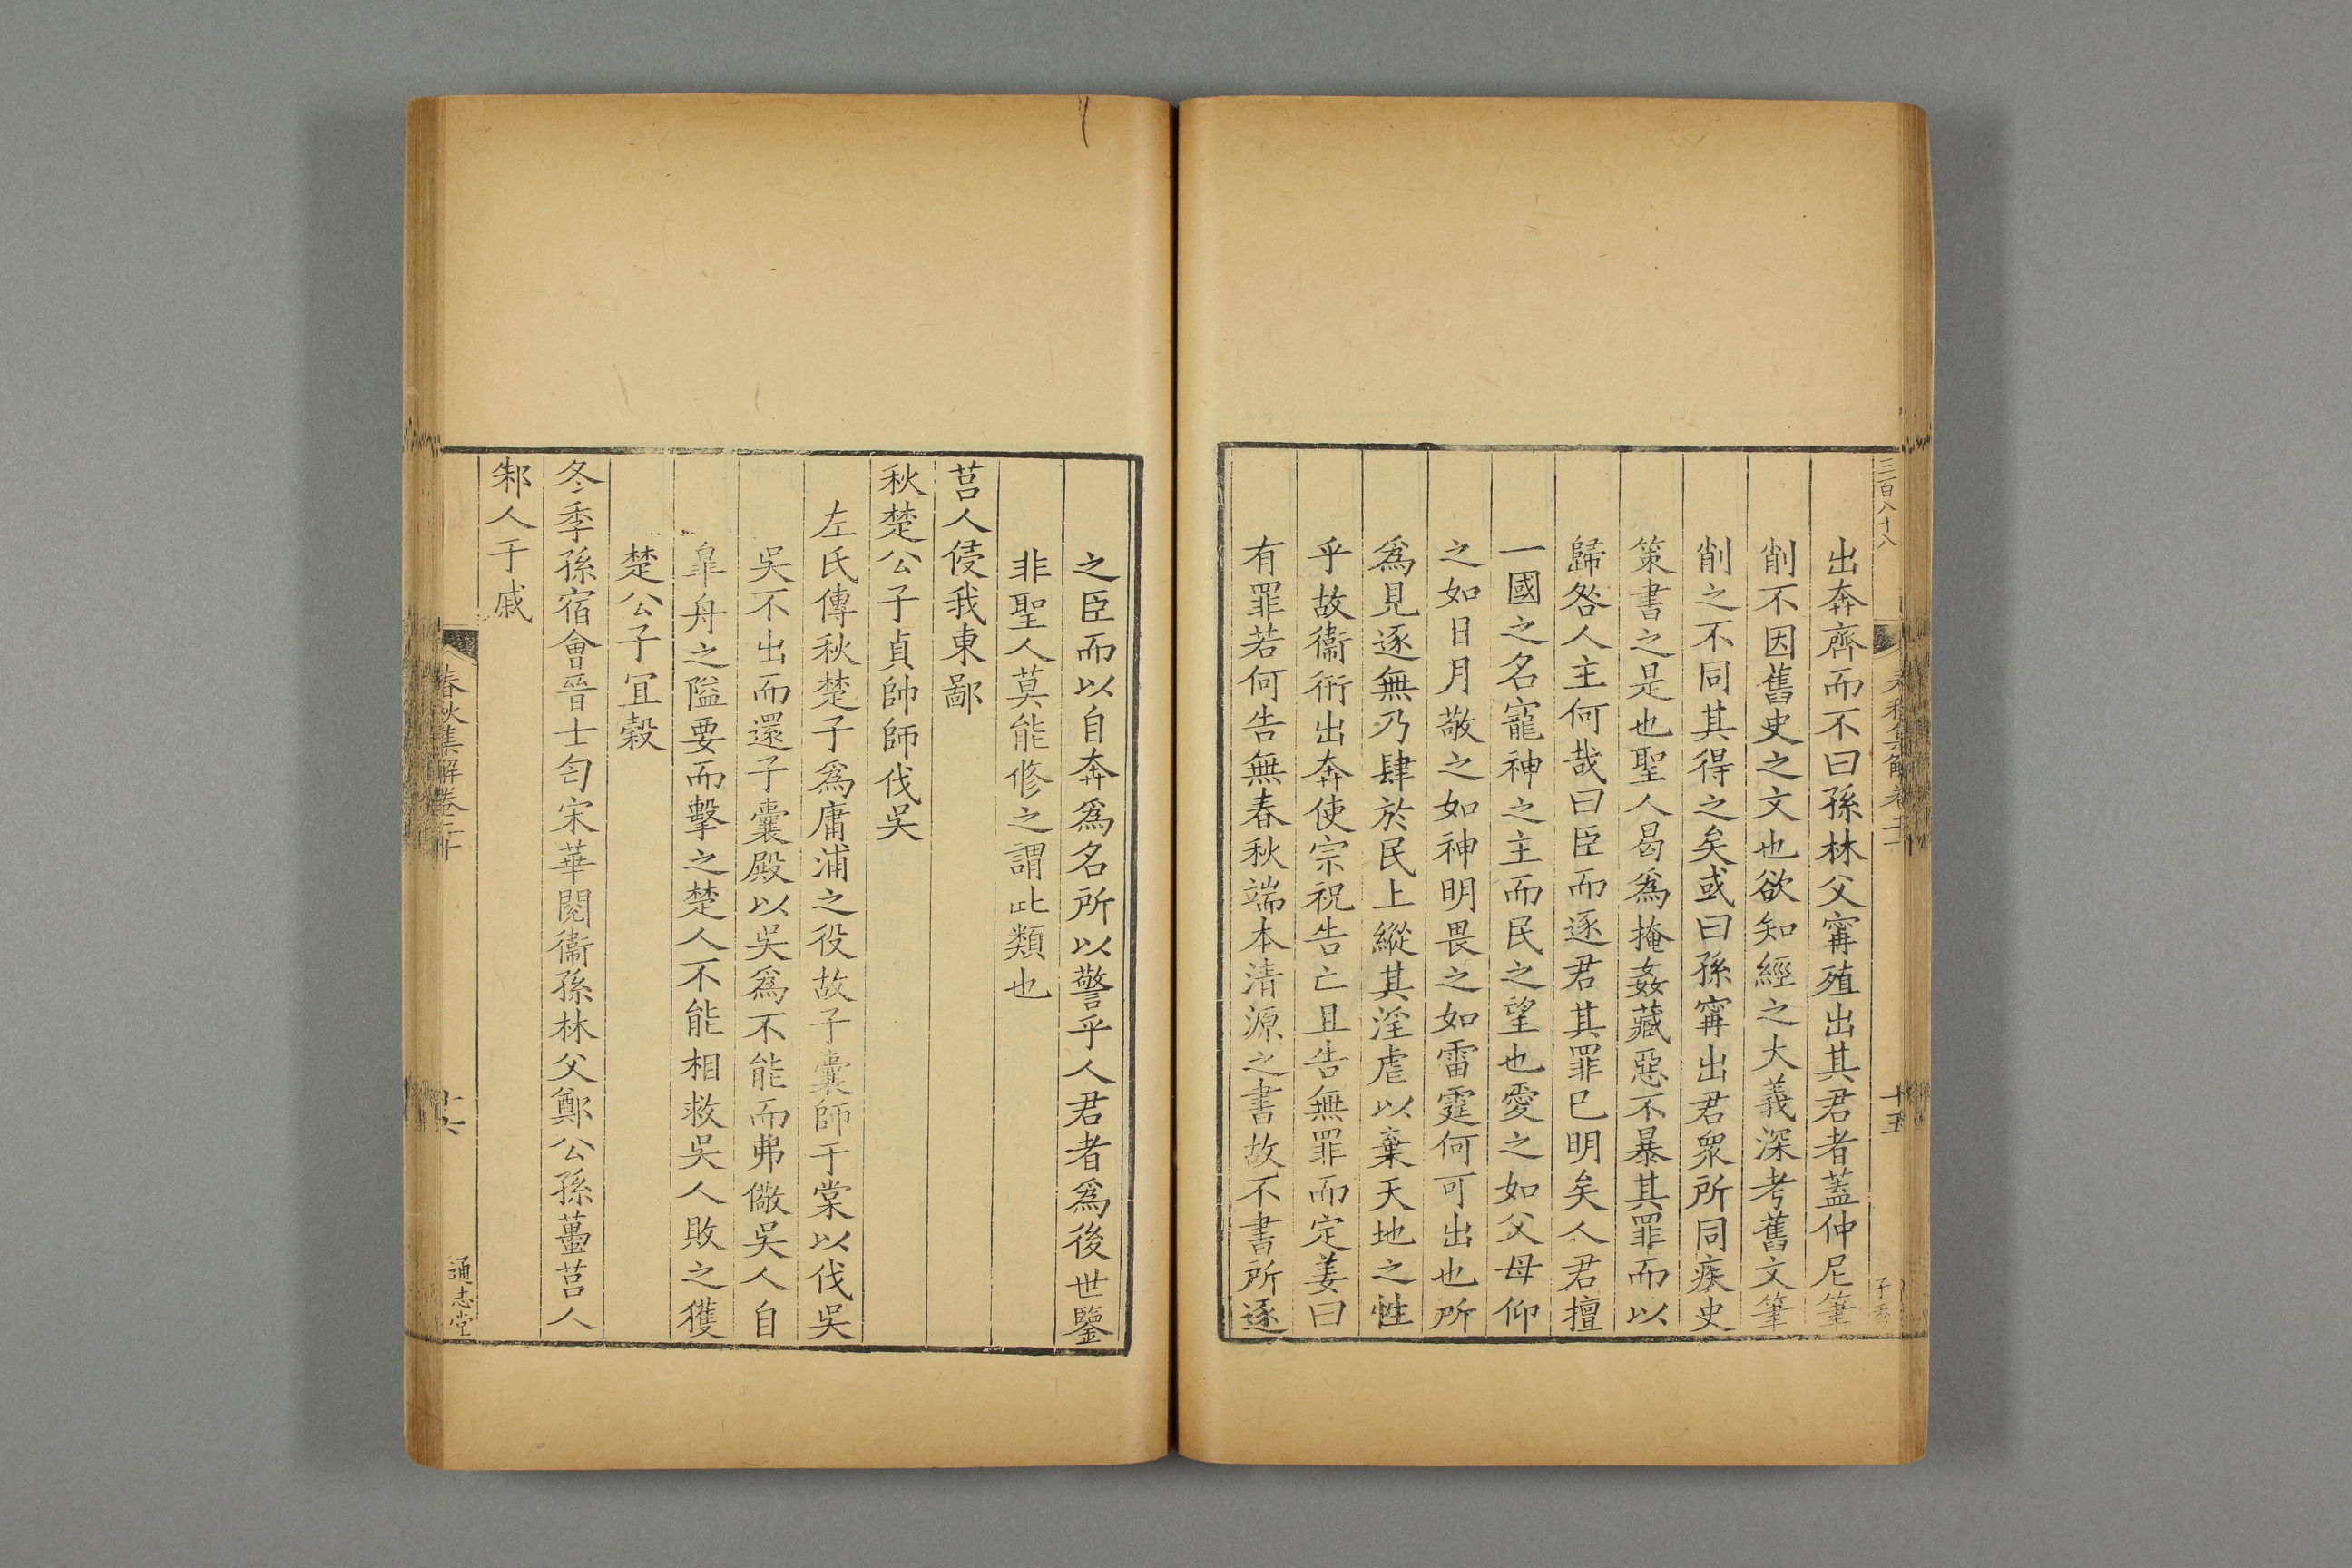 三百八十八
春秋集解卷二十
十五
子秀
出奔齊而不曰孫林父甯殖出其君者蓋仲尼筆
削不因舊史之文也欲知經之大義深考舊文筆
削之不同其得之矣或曰孫甯出君衆所同疾史
策書之是也聖人曷爲掩姦藏惡不暴其罪而以
歸咎人主何哉曰臣而逐君其罪已明矣人君擅
一國之名寵神之主而民之望也愛之如父母仰
之如日月敬之如神明畏之如雷霆何可出也所
爲見逐無乃肆於民上縱其淫虐以棄天地之性
乎故衞衎出奔使宗祝告亡且告無罪而定姜曰
有罪若何告無春秋端本清源之書故不書所逐
之臣而以自奔爲名所以警乎人君者爲後世鑒
非聖人莫能修之謂此類也
莒人侵我東鄙
秋楚公子貞帥師伐吳
左氏傳秋楚子爲庸浦之役故子囊師于棠以伐吳
吳不出而還子囊殿以吳爲不能而弗儆吳人自
皐舟之隘要而擊之楚人不能相救吳人敗之獲
楚公子宜穀
冬季孫宿會晉士匄宋華閱衞孫林父鄭公孫蠆莒人
邾人于戚
春秋集解卷二十
十六
通志堂